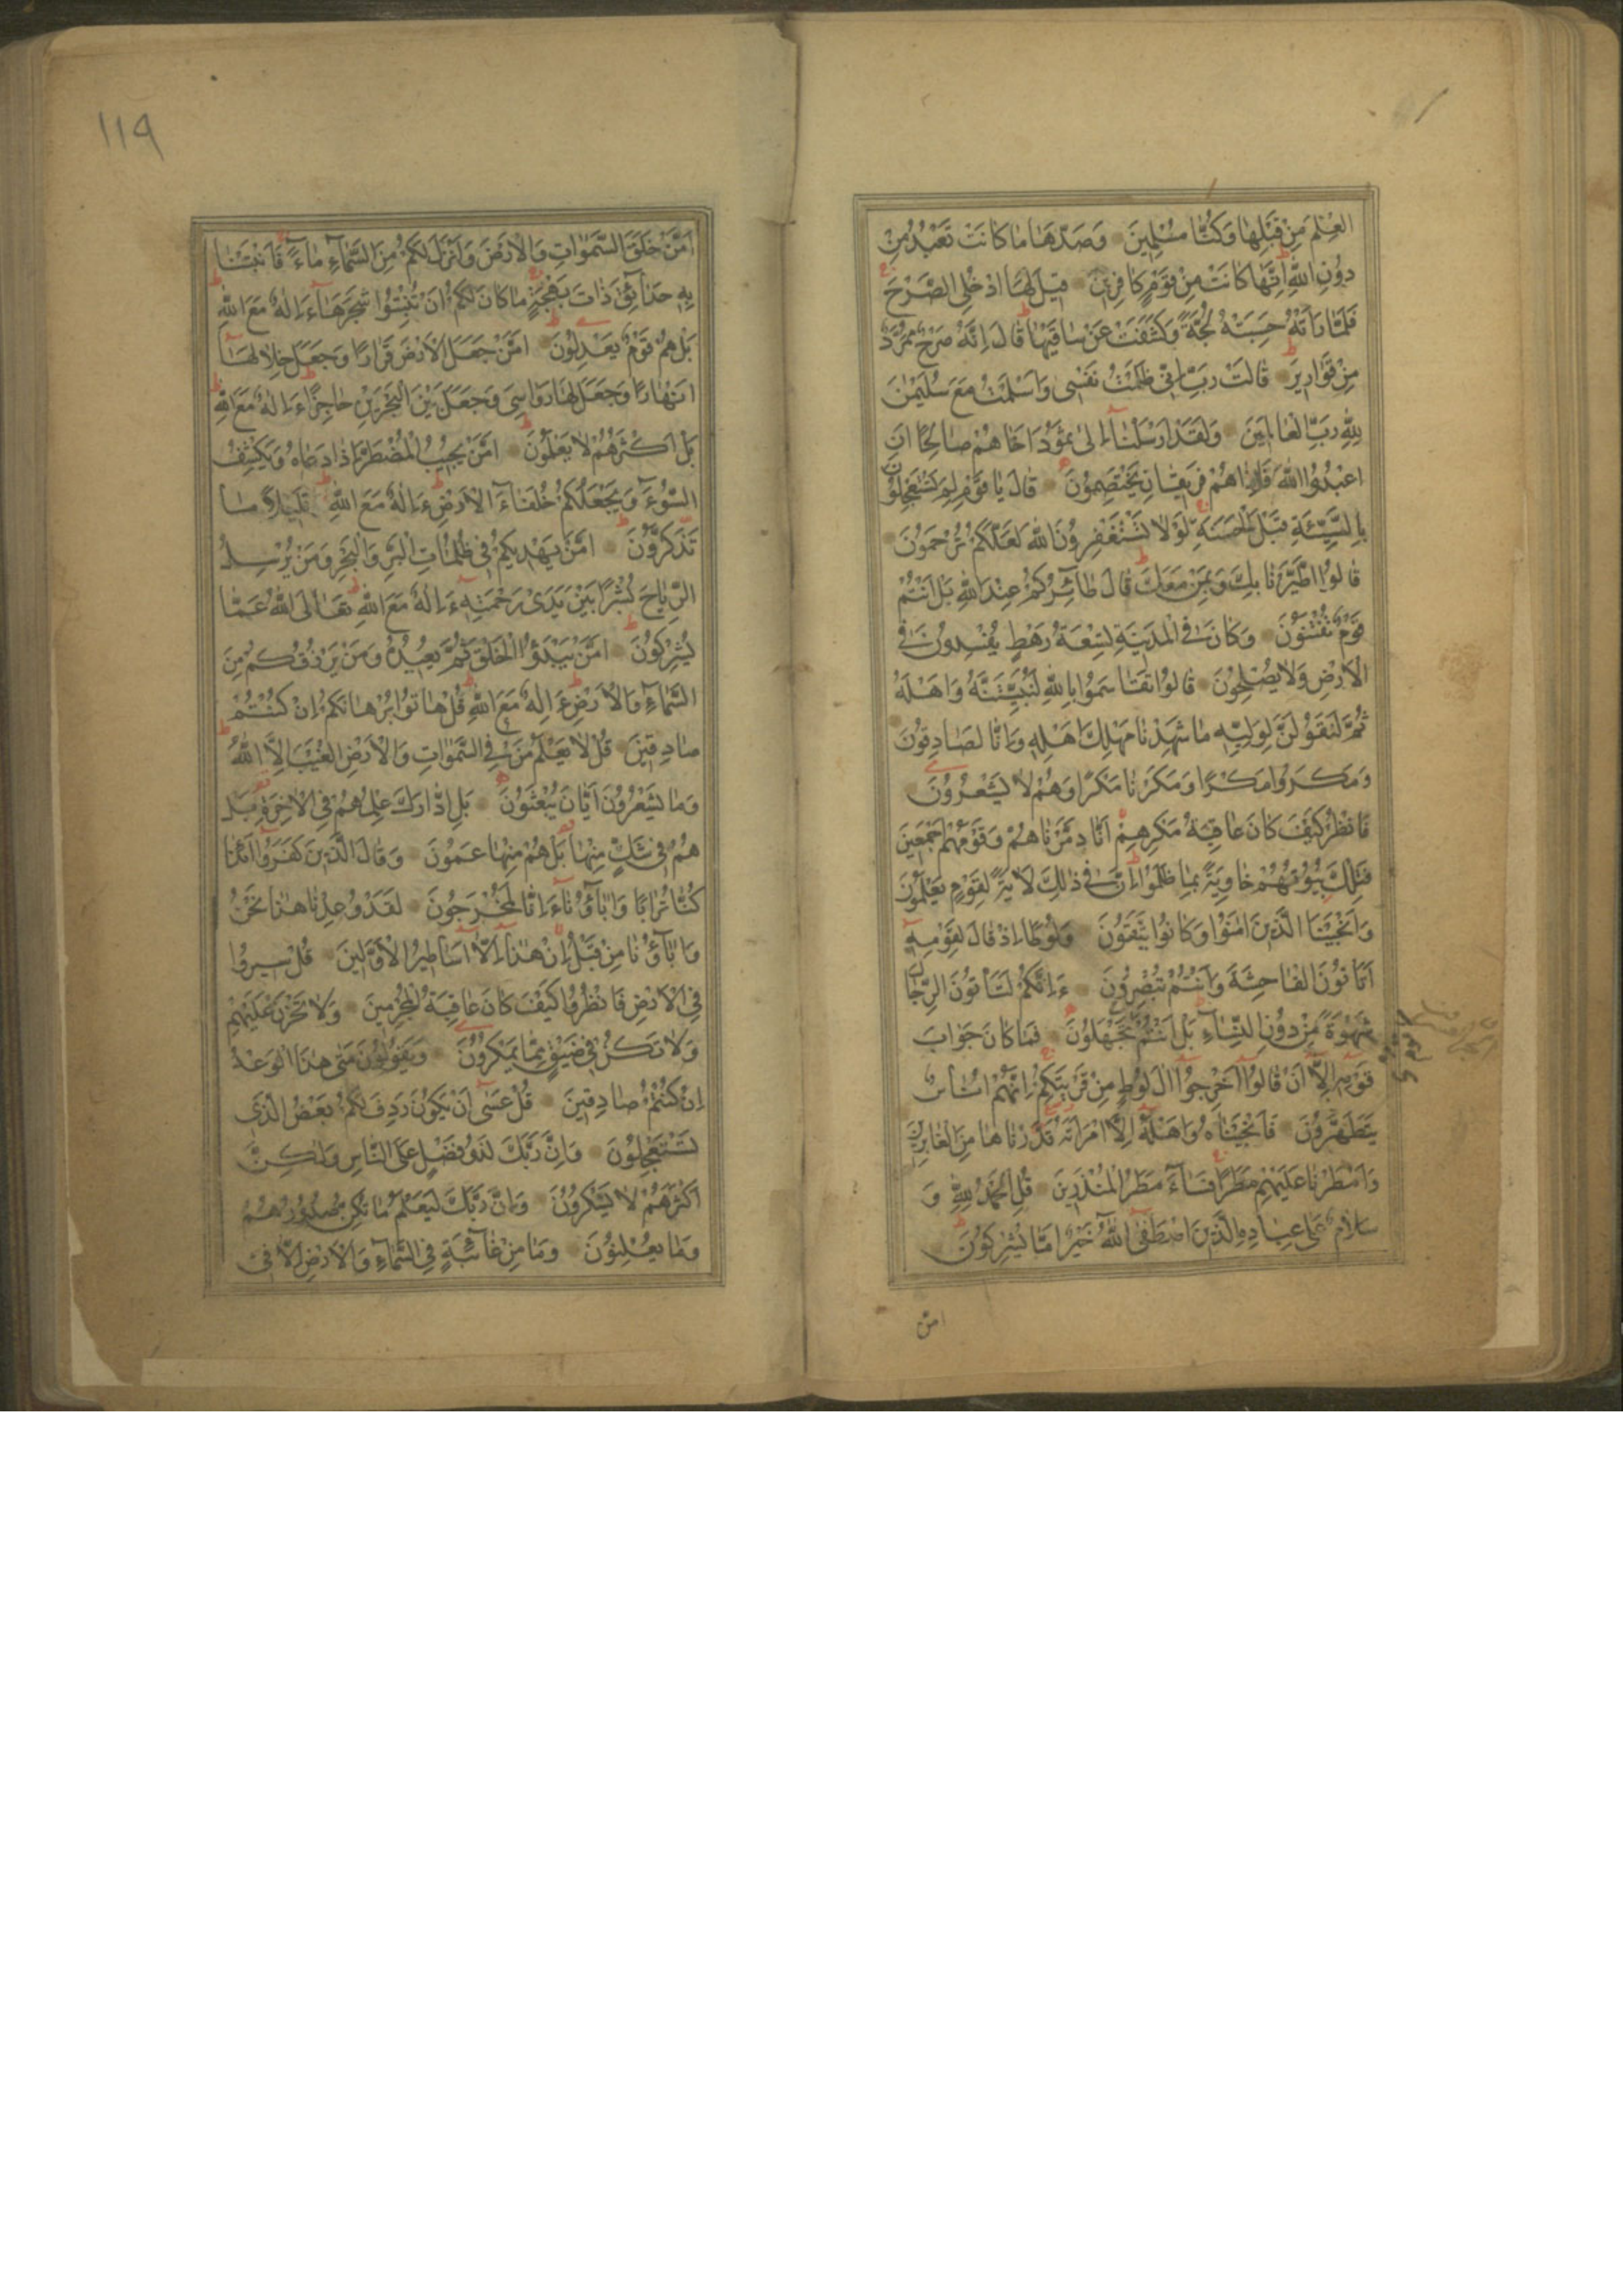 العِلْمَ مِنْ قَبْلِهَا وَكُنَّا مُسْلِمِينَ وَصَدَّهَا مَا كَانَتْ تَعْبُدُ مِنْ
دُونِ اللَّهِ اِنَّهَا كَانَتْ مِنْ قَوْمٍ كَافِرِينَ قِيلَ لَهَا ادْخُلِي الصَّرْحَ
فَلَمَّا رَاَتْهُ حَسِبَتْهُ لُجَّةً وَكَشَفَتْ عَنْ سَاقَيْهَا قَالَ اِنَّهُ صَرْحٌ مُمَرَّدٌ
مِنْ قَوَارِيرَ قَالَتْ رَبِّ اِنِّي ظَلَمْتُ نَفْسِى وَاَسْلَمْتُ مَعَ سُلَيْمٰنَ
لِلَّهِ رَبِّ الْعَالَمِينَ وَلَقَدْ اَرْسَلْنَا اِلىٰ ثَمُودَ اَخَاهُمْ صَالِحًا اَنِ
اعْبُدُوا اللَّهَ فَاِذَا هُمْ فَرِيقَانِ يَخْتَصِمُونَ قَالَ يَا قَوْمِ لِمَ تَسْتَعْجِلُونَ
بِالسَّيِّئَةِ قَبْلَ الْحَسَنَةِ لَوْلَا تَسْتَغْفِرُونَ اللَّهَ لَعَلَّكُمْ تُرْحَمُونَ
قَالُوا اطَّيَّرْنَا بِكَ وَبِمَنْ مَعَكَ قَالَ طَائِرُكُمْ عِنْدَ اللَّهِ بَلْ اَنْتُمْ
قَوْمٌ تُفْتَنُونَ وَكَانَ فِي الْمَدِينَةِ تِسْعَةُ رَهْطٍ يُفْسِدُونَ فِي
الْاَرْضِ وَلَا يُصْلِحُونَ قَالُوا تَقَاسَمُوا بِاللَّهِ لَنُبَيِّتَنَّهُ وَاَهْلَهُ
ثُمَّ لَنَقُولَنَّ لِوَلِيِّهِ مَا شَهِدْنَا مَهْلِكَ اَهْلِهِ وَاِنَّا لَصَادِقُونَ
وَمَكَرُوا مَكْرًا وَمَكَرْنَا مَكْرًا وَهُمْ لَا يَشْعُرُونَ
فَانْظُرْ كَيْفَ كَانَ عَاقِبَةُ مَكْرِهِمْ اَنَّا دَمَّرْنَاهُمْ وَقَوْمَهُمْ اَجْمَعِينَ
فَتِلْكَ بُيُوتُهُمْ خَاوِيَةً بِمَا ظَلَمُوا اِنَّ فِي ذٰلِكَ لَاٰيَةً لِقَوْمٍ يَعْلَمُونَ
وَاَنْجَيْنَا الَّذِينَ اٰمَنُوا وَكَانُوا يَتَّقُونَ وَلُوطًا اِذْ قَالَ لِقَوْمِهِ
اَتَاْتُونَ الْفَاحِشَةَ وَاَنْتُمْ تُبْصِرُونَ ءَاِنَّكُمْ لَتَاْتُونَ الرِّجَالَ
شَهْوَةً مِنْ دُونِ النِّسَاءِ بَلْ اَنْتُمْ قَوْمٌ تَجْهَلُونَ فَمَا كَانَ جَوَابَ
قَوْمِهِ اِلَّا اَنْ قَالُوا اَخْرِجُوا اٰلَ لُوطٍ مِنْ قَرْيَتِكُمْ اِنَّهُمْ اُنَاسٌ
يَتَطَهَّرُونَ فَاَنْجَيْنَاهُ وَاَهْلَهُ اِلَّا امْرَاَتَهُ قَدَّرْنَاهَا مِنَ الْغَابِرِينَ
وَاَمْطَرْنَا عَلَيْهِمْ مَطَرًا فَسَاءَ مَطَرُ الْمُنْذَرِينَ قُلِ الْحَمْدُ لِلَّهِ وَ
سَلَامٌ عَلَى عِبَادِهِ الَّذِينَ اصْطَفَى اللَّهُ خَيْرٌ اَمَّا يُشْرِكُونَ
امّن
١١٩
اَمَّنْ خَلَقَ السَّمٰوَاتِ وَالْاَرْضَ وَاَنْزَلَ لَكُمْ مِنَ السَّمَاءِ مَاءً فَاَنْبَتْنَا
بِهِ حَدَائِقَ ذَاتَ بَهْجَةٍ مَا كَانَ لَكُمْ اَنْ تُنْبِتُوا شَجَرَهَا ءَاِلٰهٌ مَعَ اللَّهِ
بَلْ هُمْ قَوْمٌ يَعْدِلُونَ اَمَّنْ جَعَلَ الْاَرْضَ قَرَارًا وَجَعَلَ خِلَالَهَا
اَنْهَارًا وَجَعَلَ لَهَا رَوَاسِيَ وَجَعَلَ بَيْنَ الْبَحْرَيْنِ حَاجِزًا ءَاِلٰهٌ مَعَ اللَّهِ
بَلْ اَكْثَرُهُمْ لَا يَعْلَمُونَ اَمَّنْ يُجِيبُ الْمُضْطَرَّ اِذَا دَعَاهُ وَيَكْشِفُ
السُّوءَ وَيَجْعَلُكُمْ خُلَفَاءَ الْاَرْضِ ءَاِلٰهٌ مَعَ اللَّهِ قَلِيلًا مَا
تَذَكَّرُونَ اَمَّنْ يَهْدِيكُمْ فِي ظُلُمَاتِ الْبَرِّ وَالْبَحْرِ وَمَنْ يُرْسِلُ
الرِّيَاحَ بُشْرًا بَيْنَ يَدَىْ رَحْمَتِهِ ءَاِلٰهٌ مَعَ اللَّهِ تَعَالَى اللَّهُ عَمَّا
يُشْرِكُونَ اَمَّنْ يَبْدَؤُا الْخَلْقَ ثُمَّ يُعِيدُهُ وَمَنْ يَرْزُقُكُمْ مِنَ
السَّمَاءِ وَالْاَرْضِ ءَاِلٰهٌ مَعَ اللَّهِ قُلْ هَاتُوا بُرْهَانَكُمْ اِنْ كُنْتُمْ
صَادِقِينَ قُلْ لَا يَعْلَمُ مَنْ فِي السَّمٰوَاتِ وَالْاَرْضِ الْغَيْبَ اِلَّا اللَّهُ
وَمَا يَشْعُرُونَ اَيَّانَ يُبْعَثُونَ بَلِ ادَّارَكَ عِلْمُهُمْ فِي الْاٰخِرَةِ بَلْ
هُمْ فِي شَكٍّ مِنْهَا بَلْ هُمْ مِنْهَا عَمُونَ وَقَالَ الَّذِينَ كَفَرُوا اَءِذَا
كُنَّا تُرَابًا وَاٰبَاؤُنَا ءَاِنَّا لَمُخْرَجُونَ لَقَدْ وُعِدْنَا هٰذَا نَحْنُ
وَاٰبَاؤُنَا مِنْ قَبْلُ اِنْ هٰذَا اِلَّا اَسَاطِيرُ الْاَوَّلِينَ قُلْ سِيرُوا
فِي الْاَرْضِ فَانْظُرُوا كَيْفَ كَانَ عَاقِبَةُ الْمُجْرِمِينَ وَلَا تَحْزَنْ عَلَيْهِمْ
وَلَا تَكُنْ فِي ضَيْقٍ مِمَّا يَمْكُرُونَ وَيَقُولُونَ مَتٰى هٰذَا الْوَعْدُ
اِنْ كُنْتُمْ صَادِقِينَ قُلْ عَسٰى اَنْ يَكُونَ رَدِفَ لَكُمْ بَعْضُ الَّذِي
تَسْتَعْجِلُونَ وَاِنَّ رَبَّكَ لَذُو فَضْلٍ عَلَى النَّاسِ وَلٰكِنَّ
اَكْثَرَهُمْ لَا يَشْكُرُونَ وَاِنَّ رَبَّكَ لَيَعْلَمُ مَا تُكِنُّ صُدُورُهُمْ
وَمَا يُعْلِنُونَ وَمَا مِنْ غَائِبَةٍ فِي السَّمَاءِ وَالْاَرْضِ اِلَّا فِي